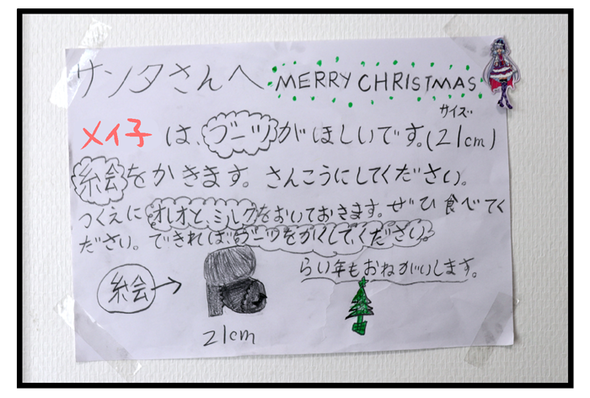 サンタさんへ MERRY CHRISTMAS
サイズ
メイ子は、ブーツがほしいです。(21cm)
絵会をかきます。さんこうにしてください。
つくえにオレオと、ミルクをおいておきます。ぜひ食べてく
ださい。できれば、ブーツをかくしてください。
らい年もおねがいします。
絵会→
21cm